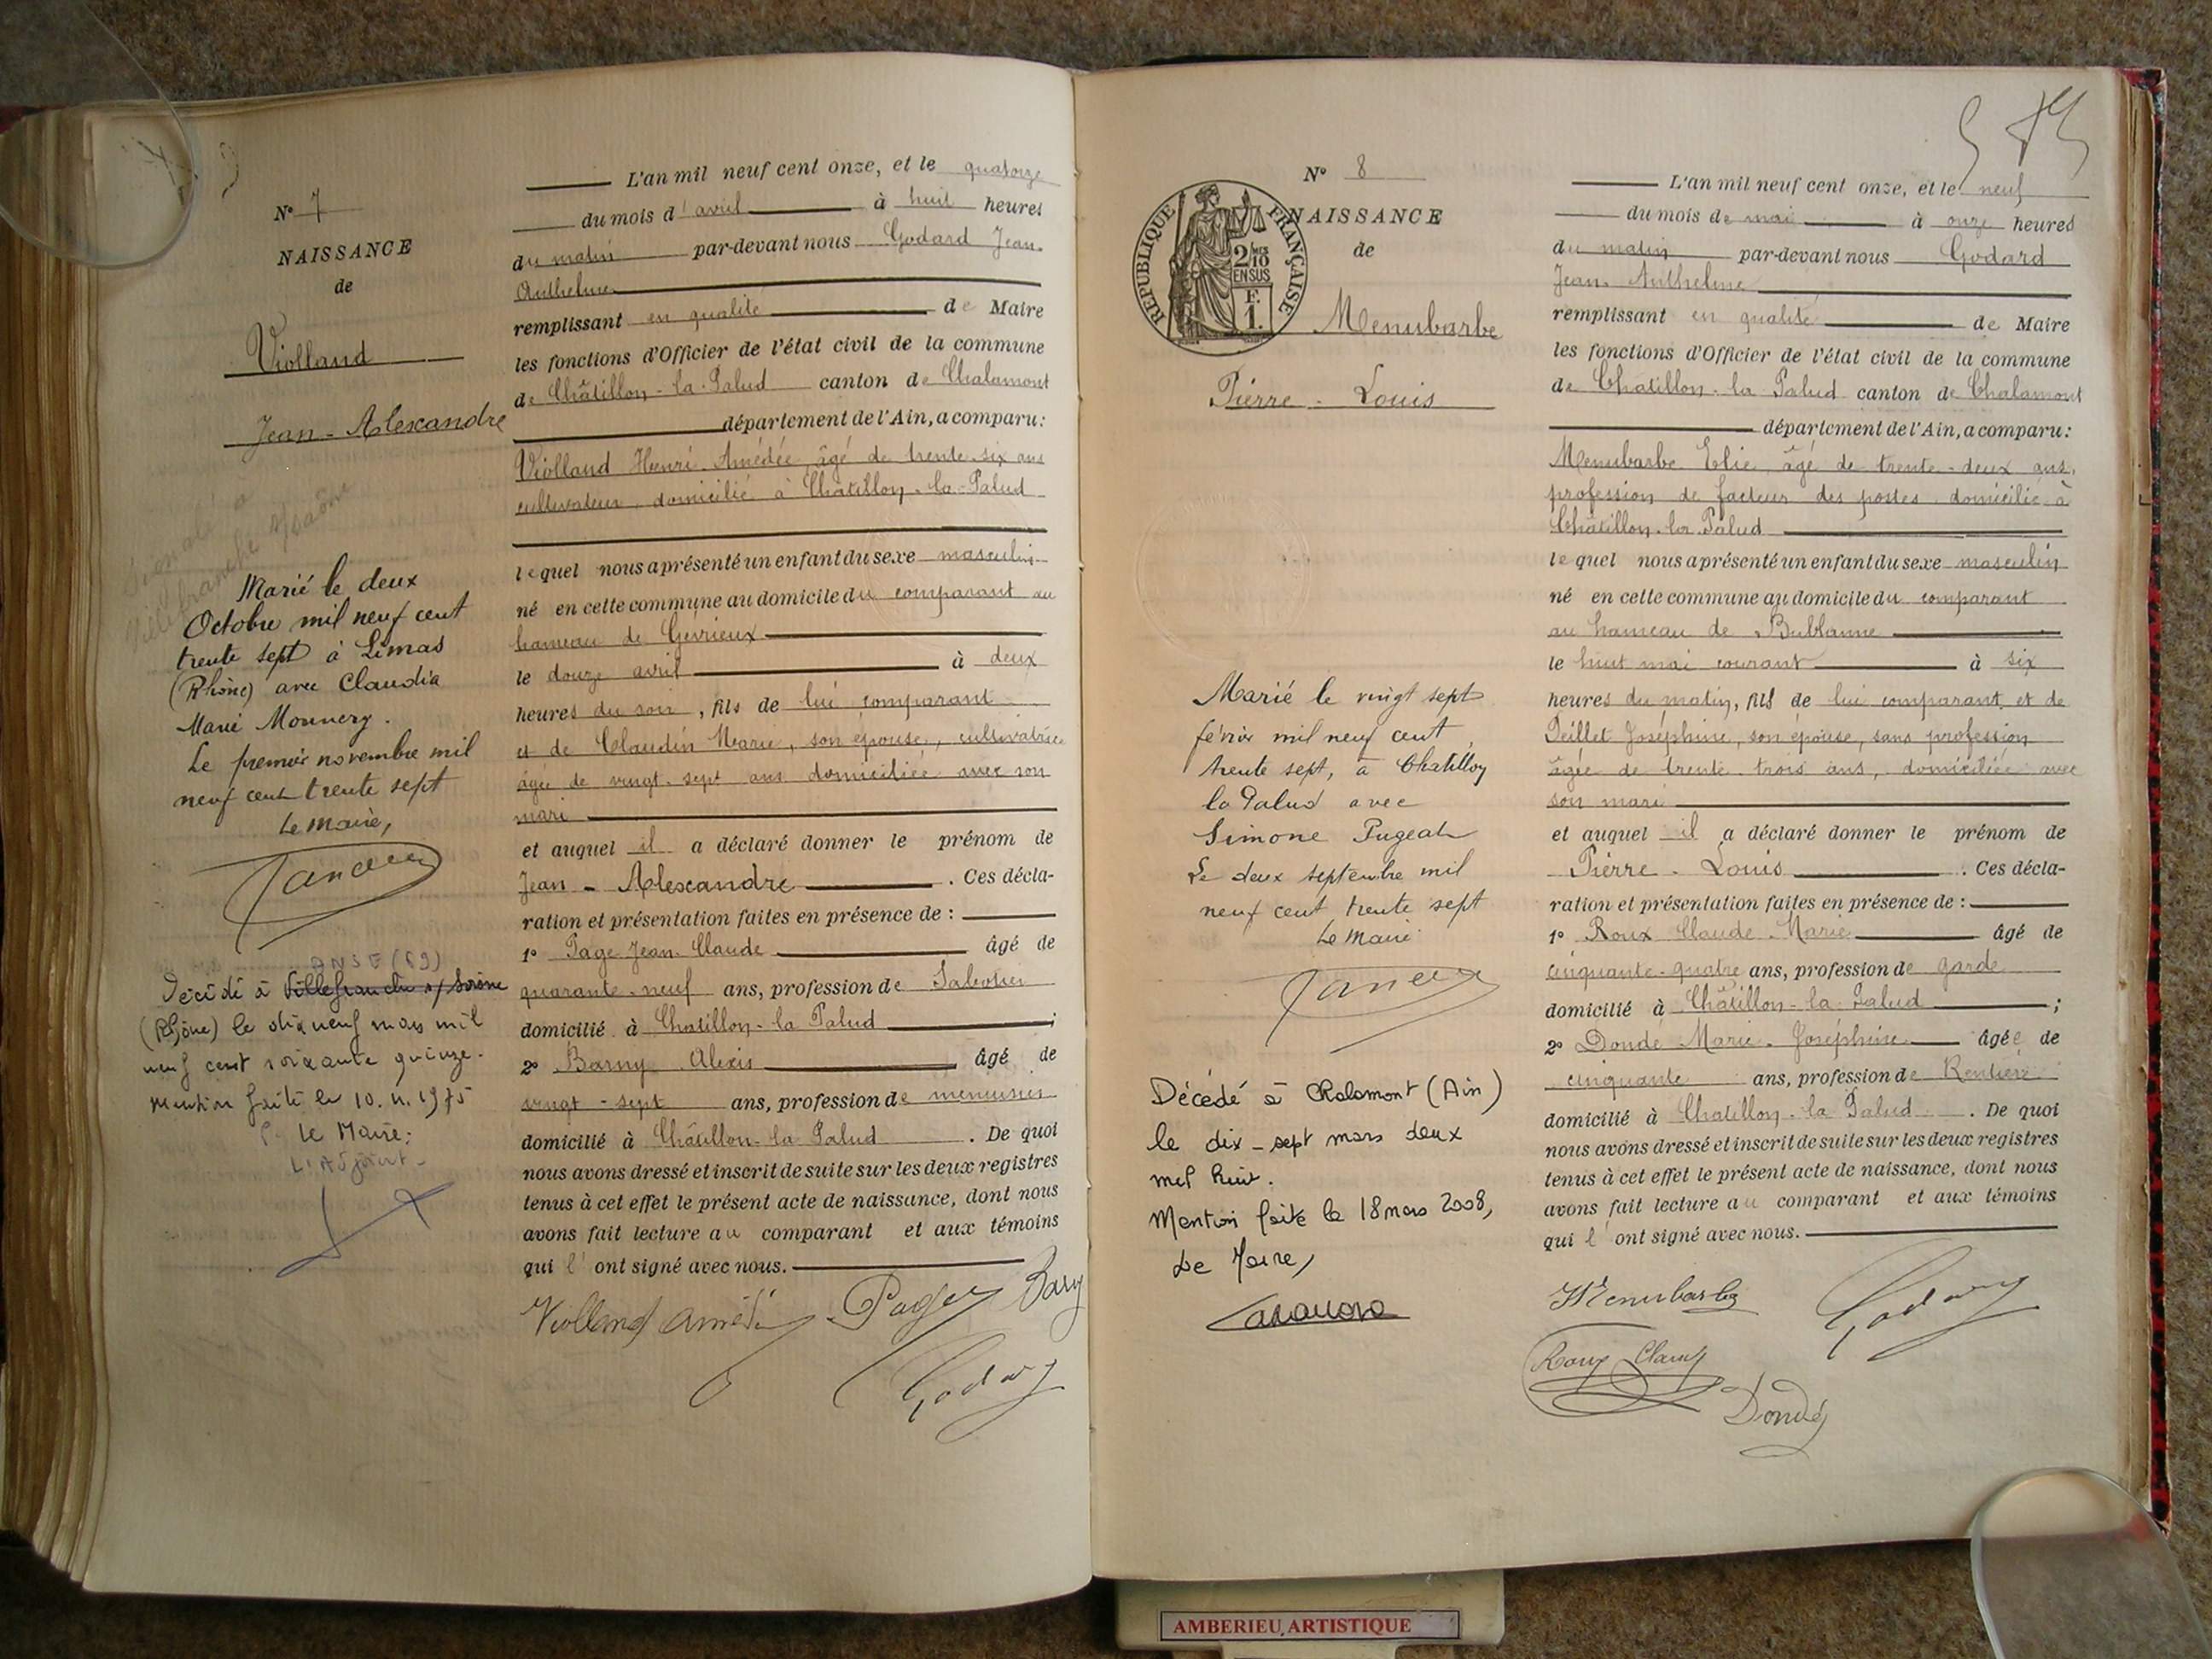 N° 7
NAISSANCE
de
Violland
Jean - Alexandre
Marié le deux
Octobre mil neuf cent
trente sept à Limas
(Rhône) avec Claudia
Marie Monnery.
Le premier novembre mil
neuf cent trente sept
Le Maire,
ANSE (69)
Décédé à Villefranche s/ Saône
(Rhône) le dix neuf mars mil
neuf cent soixante quinze.
Mention faite le 10.4.1975
P. Le Maire:
L'Adjoint.
L'an mil neuf cent onze, et le quatorze
du mois d'avril à huit heures
du matin par-devant nous Godard Jean
Anthelme
remplissant en qualité de Maire
les fonctions d'Officier de l'état civil de la commune
de Châtillon-la-Palud canton de Chalamont
département de l'Ain, a comparu:
Violland Henri Amédée, âgé de trente-six ans
cultivateur, domicilié à Châtillon-la-Palud
lequel nous a présenté un enfant du sexe masculin
né en cette commune au domicile du comparant au
hameau de Gévrieux
le douze avril à deux
heures du soir, fils de lui comparant
et de Claudin Marie, son épouse, cultivatrice
âgée de vingt-sept ans domiciliée avec son
mari
et auquel il a déclaré donner le prénom de
Jean - Alexandre. Ces décla-
ration et présentation faites en présence de :
1° Page Jean-Claude âgé de
quarante-neuf ans, profession de Sabotier
domicilié à Chatillon-la Palud ;
2° Barny Alexis âgé de
vingt-sept ans, profession de menuisier
domicilié à Châtillon-la Palud. De quoi
nous avons dressé et inscrit de suite sur les deux registres
tenus à cet effet le présent acte de naissance, dont nous
avons fait lecture au comparant et aux témoins
qui l'ont signé avec nous.
Violland Amédée Page Barny
Godard
N° 8
NAISSANCE
de
RÉPUBLIQUE FRANÇAISE
2/10
EN SUS
F.
1.
Menubarbe
Pierre - Louis
Marié le vingt sept
février mil neuf cent
trente sept, à Chatillon
la Palud avec
Simone Pugeat
Le deux septembre mil
neuf cent trente sept
Le Maire
Décédé à Chalamont (Ain)
le dix-sept mars deux
mil huit.
Mention faite le 18 mars 2008,
Le Maire,
L'an mil neuf cent onze, et le neuf
du mois de mai à onze heures
du matin par-devant nous Godard
Jean-Anthelme
remplissant en qualité de Maire
les fonctions d'Officier de l'état civil de la commune
de Chatillon-la Palud canton de Chalamont
département de l'Ain, a comparu:
Menubarbe Elie, âgé de trente-deux ans,
profession de facteur des postes, domicilié à
Châtillon-la-Palud
lequel nous a présenté un enfant du sexe masculin
né en cette commune au domicile du comparant
au hameau de Bublanne
le huit mai courant à six
heures du matin, fils de lui comparant et de
Peillet Joséphine, son épouse, sans profession
âgée de trente-trois ans, domiciliée avec
son mari
et auquel il a déclaré donner le prénom de
Pierre - Louis. Ces décla-
ration et présentation faites en présence de :
1° Roux Claude-Marie âgé de
cinquante-quatre ans, profession de garde
domicilié à Châtillon-la-Palud ;
2° Dondé Marie-Joséphine âgée de
cinquante ans, profession de Rentière
domicilié à Chatillon-la Palud. De quoi
nous avons dressé et inscrit de suite sur les deux registres
tenus à cet effet le présent acte de naissance, dont nous
avons fait lecture au comparant et aux témoins
qui l'ont signé avec nous.
Menubarbe Godard
Roux Claude
Dondé
AMBERIEU ARTISTIQUE